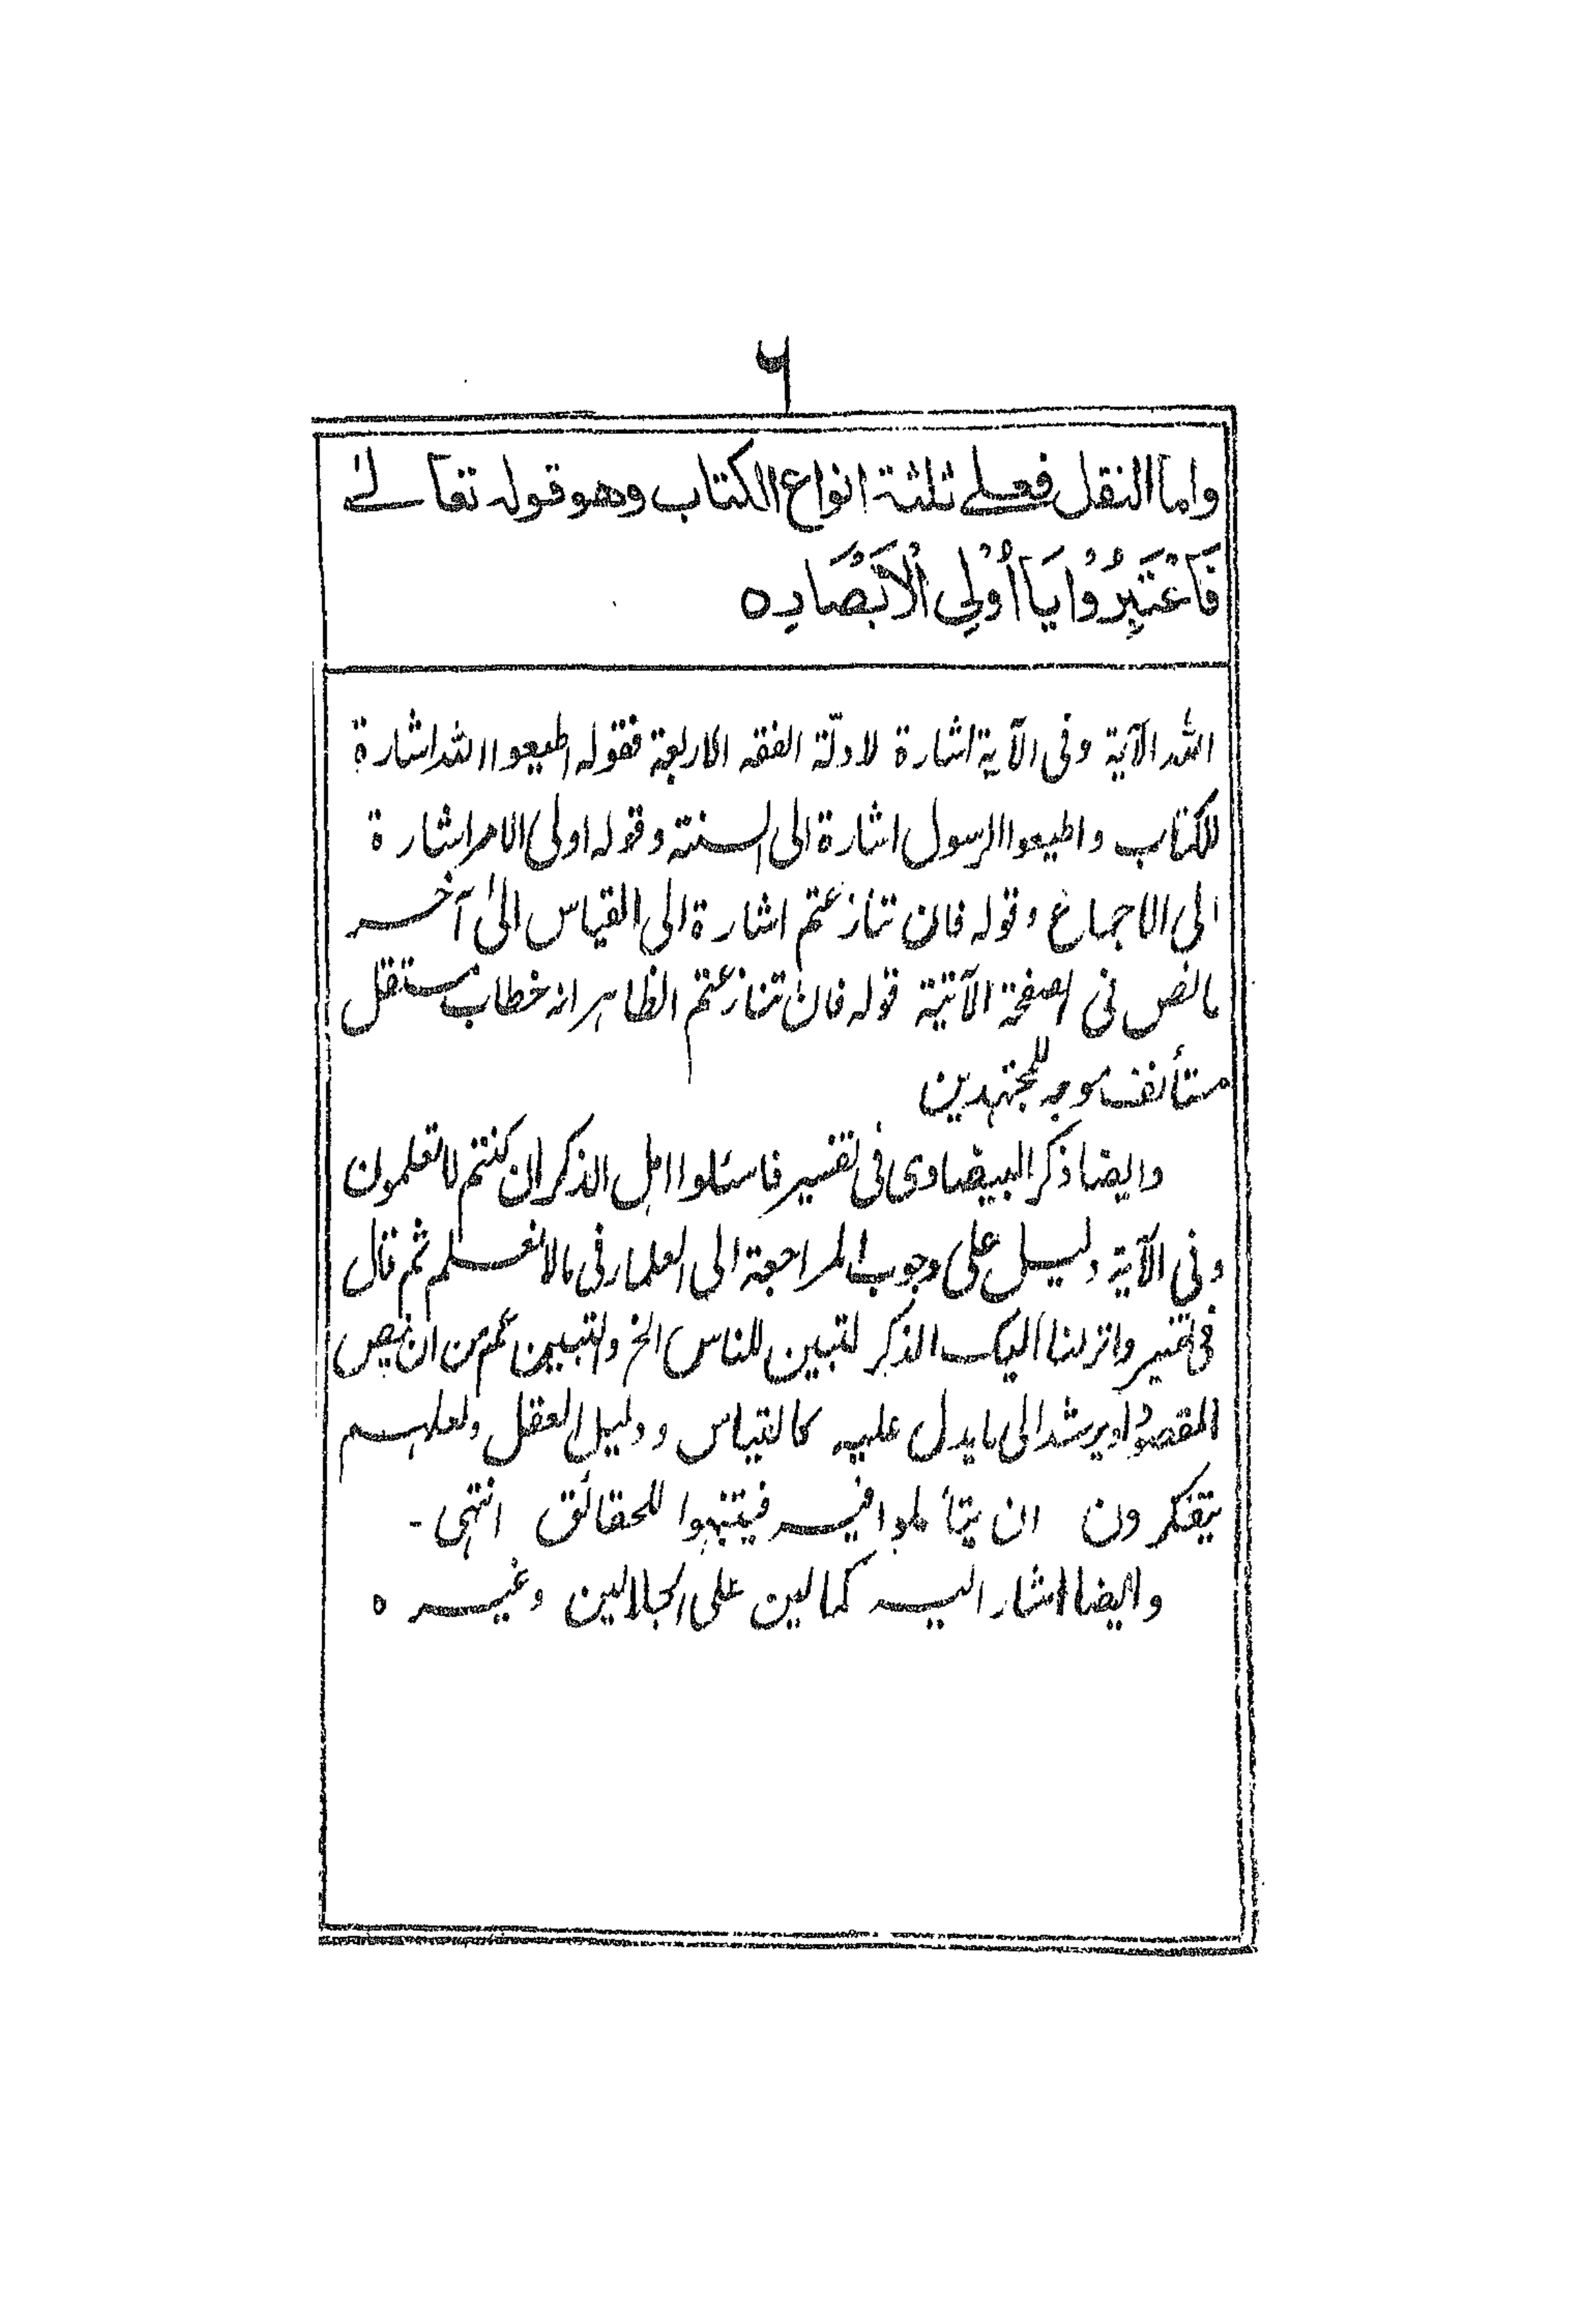 ۶
واما النقل فعلى ثلثة انواع الكتاب وهو قوله تعالى
فَاعْتَبِرُوْا يَا أُوْلِي الْاَبْصَارِه
الله الآية وفى الآية اشارة لادلّة الفقه الاربعة فقوله اطيعوا الله اشارة
للكتاب واطيعوا الرسول اشارة الى السنة وقوله اولى الامر اشارة
الى الاجماع وقوله فان تنازعتم اشارة الى القياس الىٰ آخر
مانص فى الصفحة الآتية قوله فان تنازعتم الظاهر انه خطاب مستقل
مستأنف موجه للمجتهدين
وايضا ذكر البيضاوى فى تفسير فاسئلوا اهل الذكر ان كنتم لا تعلمون
وفى الآية دليل على وجوب المراجعة الى العلماء فى مالا نعلم ثم قال
فى تفسير وانزلنا اليك الذكر لتبين للناس الخ والتبيين اعم من ان ينص
المقصود او يرشد الى ما يدل عليه كالقياس ودليل العقل ولعلهم
يتفكرون ان يتأملوا فيه فيتنبهوا للحقائق انتهى -
وايضا اشار اليه كمالين على الجلالين وغيره ه